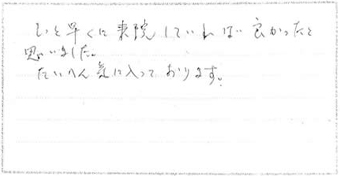 もっと早くに来院していれば良かったと
思いました。
たいへん気に入っております。